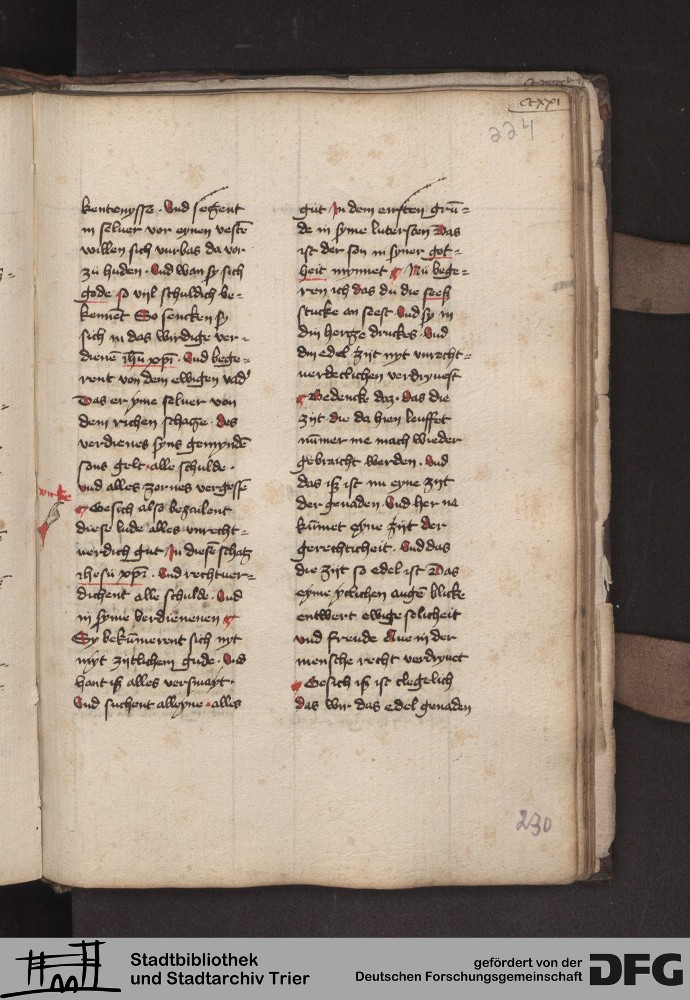 CCXXI
224
kentenysse · Und sehent
in selver vor eynen vesten
willen sich vurbas da vor
zü huden · Und wan sy sich
gode so vyl schuldich be=
kennet So sencken sy
sich in das wirdige ver=
dienē ihū xpī · Und bege=
rent von dem ewigen vad'
Das er yme selver von
dem richen schatze · des
verdienes syns gemynden
sons gelt · alle schulde ·
und alles zornes vergesß
Gesich also bezailent
diese lude alles unrecht=
verdich gut In diesē schatz
ihesu xpī · Und rechtver=
dichent alle schulde · Und
in syme verdienenen
Sy bekūmerent sich nyt
myt zijtlichem gude · Und
hant iß alles versmayt ·
Und suchent alleyne · alles
gut In dem ersten grū=
de in syme lutersten Das
ist der son in syner got=
heit mynnet Nü bege=
ren ich das du die seeß
stucke an seest · Und sy in
din hertze druckes · Und
din edel zijt nyt unrecht=
verdeclichen verdryvest
Bedencke daz · das die
zijt · die da hien leuffet
nūmer me mach wieder
gebraicht werden · Und
das iß ist nu eyne zijt
der genaden · Und her na
kūmet eyne zijt der
gerechticheit · Und das
die zijt so edel ist Das
eyme yclichen augē blicke
entwert ewige selicheit
und freude Ave in der
mensche recht verdryvet
Gesich iß ist clegelich
das wir das edel genaden
230
Stadtbibliothek
und Stadtarchiv Trier
gefördert von der
Deutschen Forschungsgemeinschaft
DFG